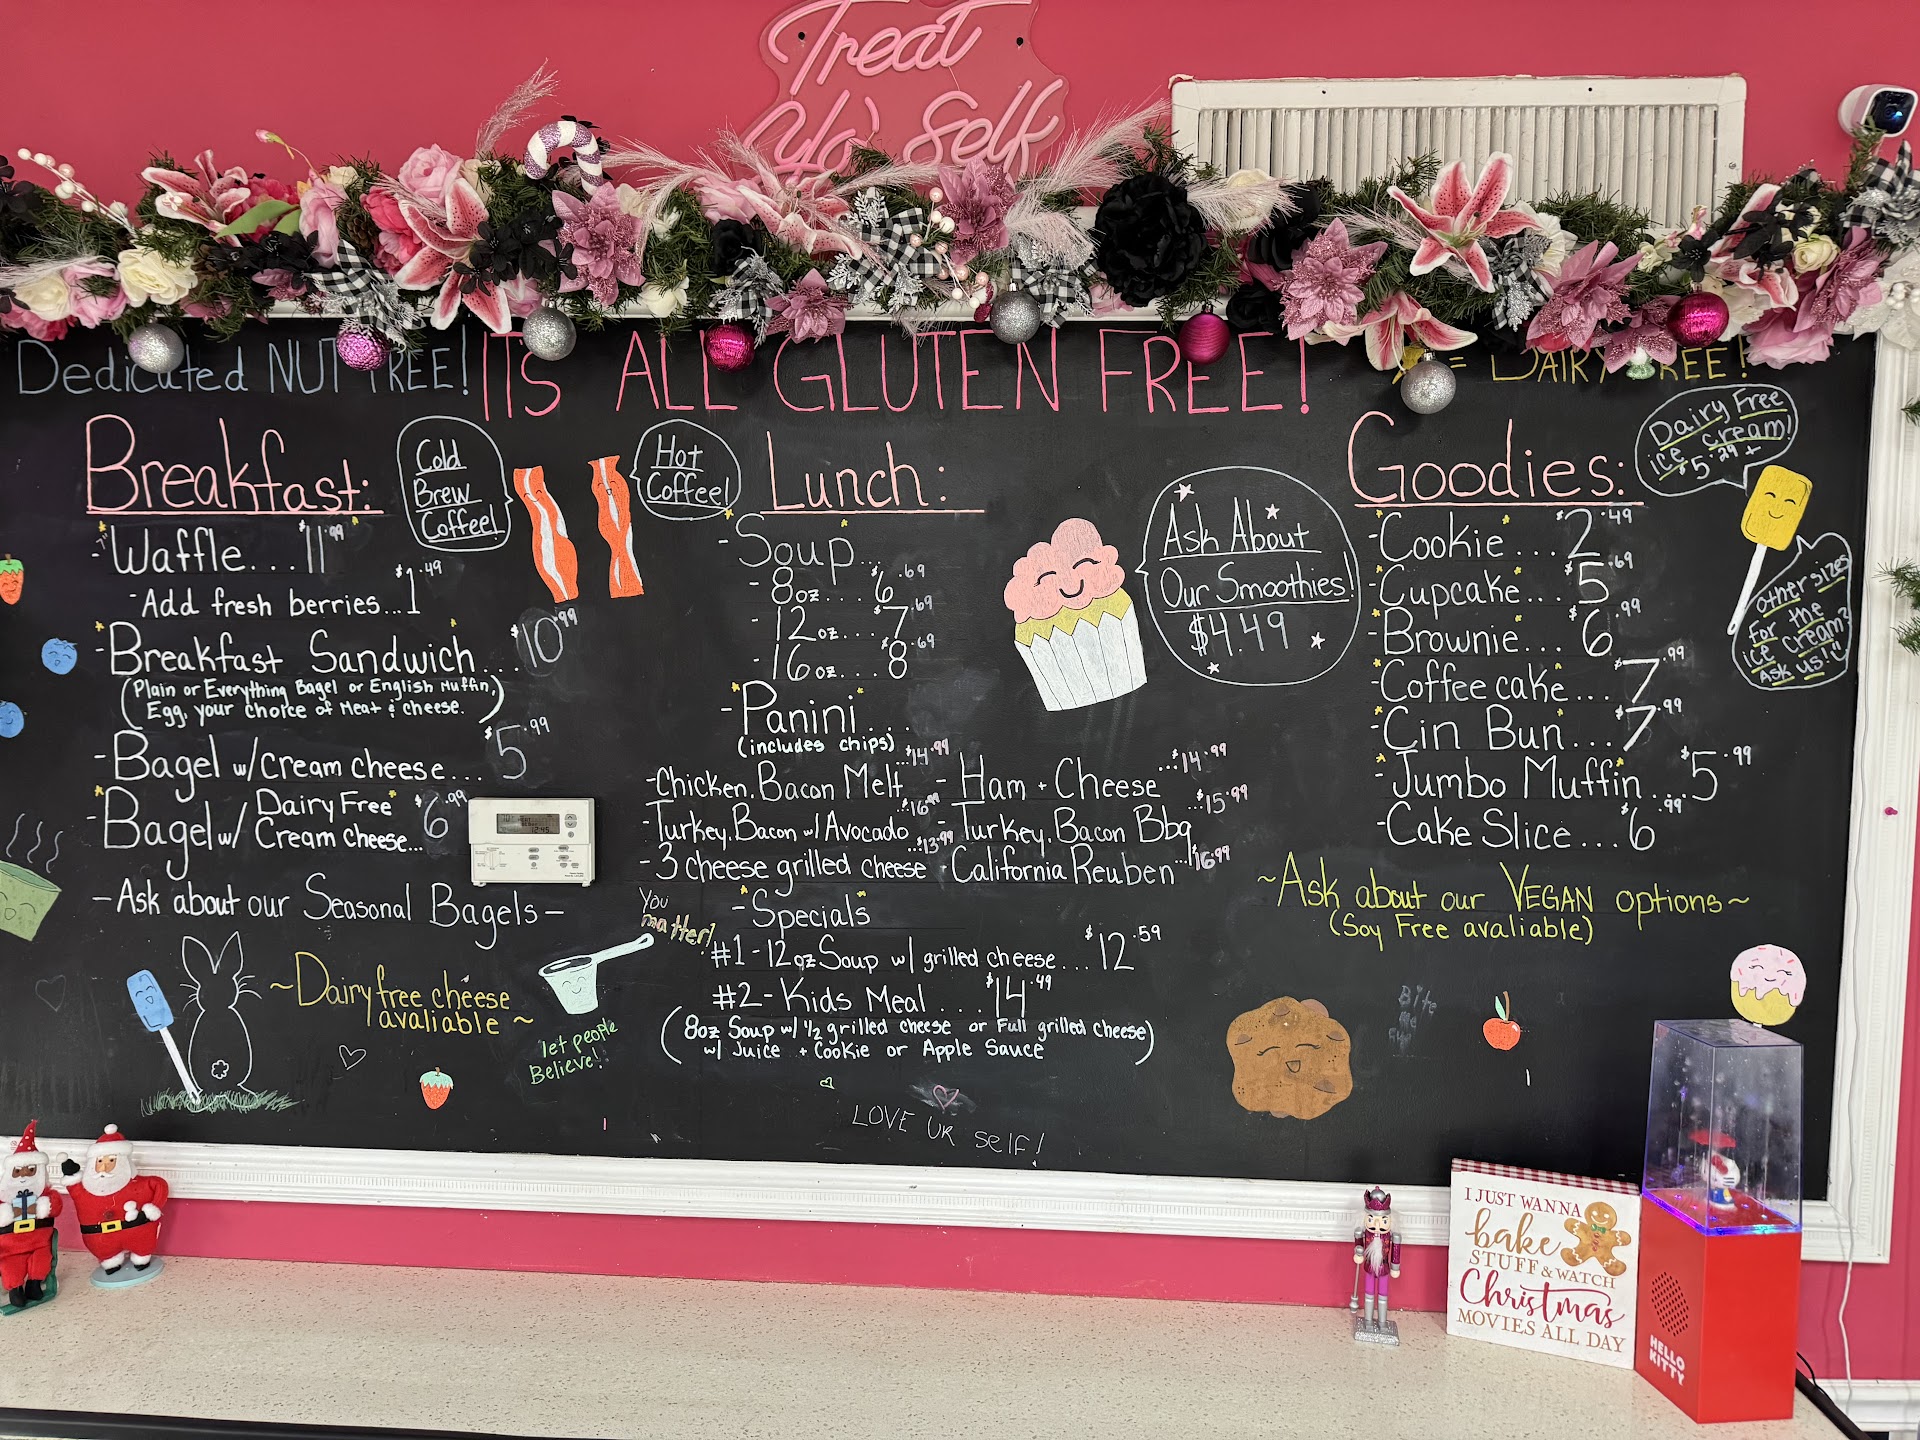 Treat
Yo' Self
Dedicated NUT FREE!
ITS ALL GLUTEN FREE!
= DAIRY FREE!
Breakfast:
Cold
Brew
Coffee!
Hot
Coffee!
- 7" Waffle... $11.99
- Add fresh berries... $1.49
- Breakfast Sandwich... $10.99
(Plain or Everything Bagel or English Muffin,
Egg, your choice of Meat & cheese.)
- Bagel w/ Cream cheese... $5.99
- Bagel w/ Dairy Free Cream cheese... $6.99
- Ask about our Seasonal Bagels -
~Dairy free cheese
avaliable~
let people
Believe!
You
matter!
Lunch:
- Soup...
- 8oz.... $6.69
- 12oz... $7.69
- 16oz... $8.69
- Panini...
(includes chips)
- Chicken, Bacon Melt ...$14.99
- Ham + Cheese ...$14.99
- Turkey, Bacon w/ Avocado ...$16.99
- Turkey, Bacon Bbq ...$15.99
- 3 cheese grilled cheese ...$13.99
- California Reuben ...$16.99
- Specials
#1 - 12oz Soup w/ grilled cheese... $12.59
#2 - Kids Meal... $14.49
(8oz Soup w/ 1/2 grilled cheese or Full grilled cheese)
w/ Juice + Cookie or Apple Sauce
LOVE UR SElf!
Ask About
Our Smoothies!
$4.49
Goodies:
- Cookie... $2.49
- Cupcake... $5.69
- Brownie... $6.99
- Coffee cake... $7.99
- Cin Bun... $7.99
- Jumbo Muffin... $5.99
- Cake Slice... $6.99
Dairy Free
ice cream!
$5.29+
Other sizes
for the
ice cream?
Ask us!
~Ask about our VEGAN options~
(Soy Free avaliable)
Bite
me
I JUST WANNA
bake
STUFF & WATCH
Christmas
MOVIES ALL DAY
HELLO
KITTY